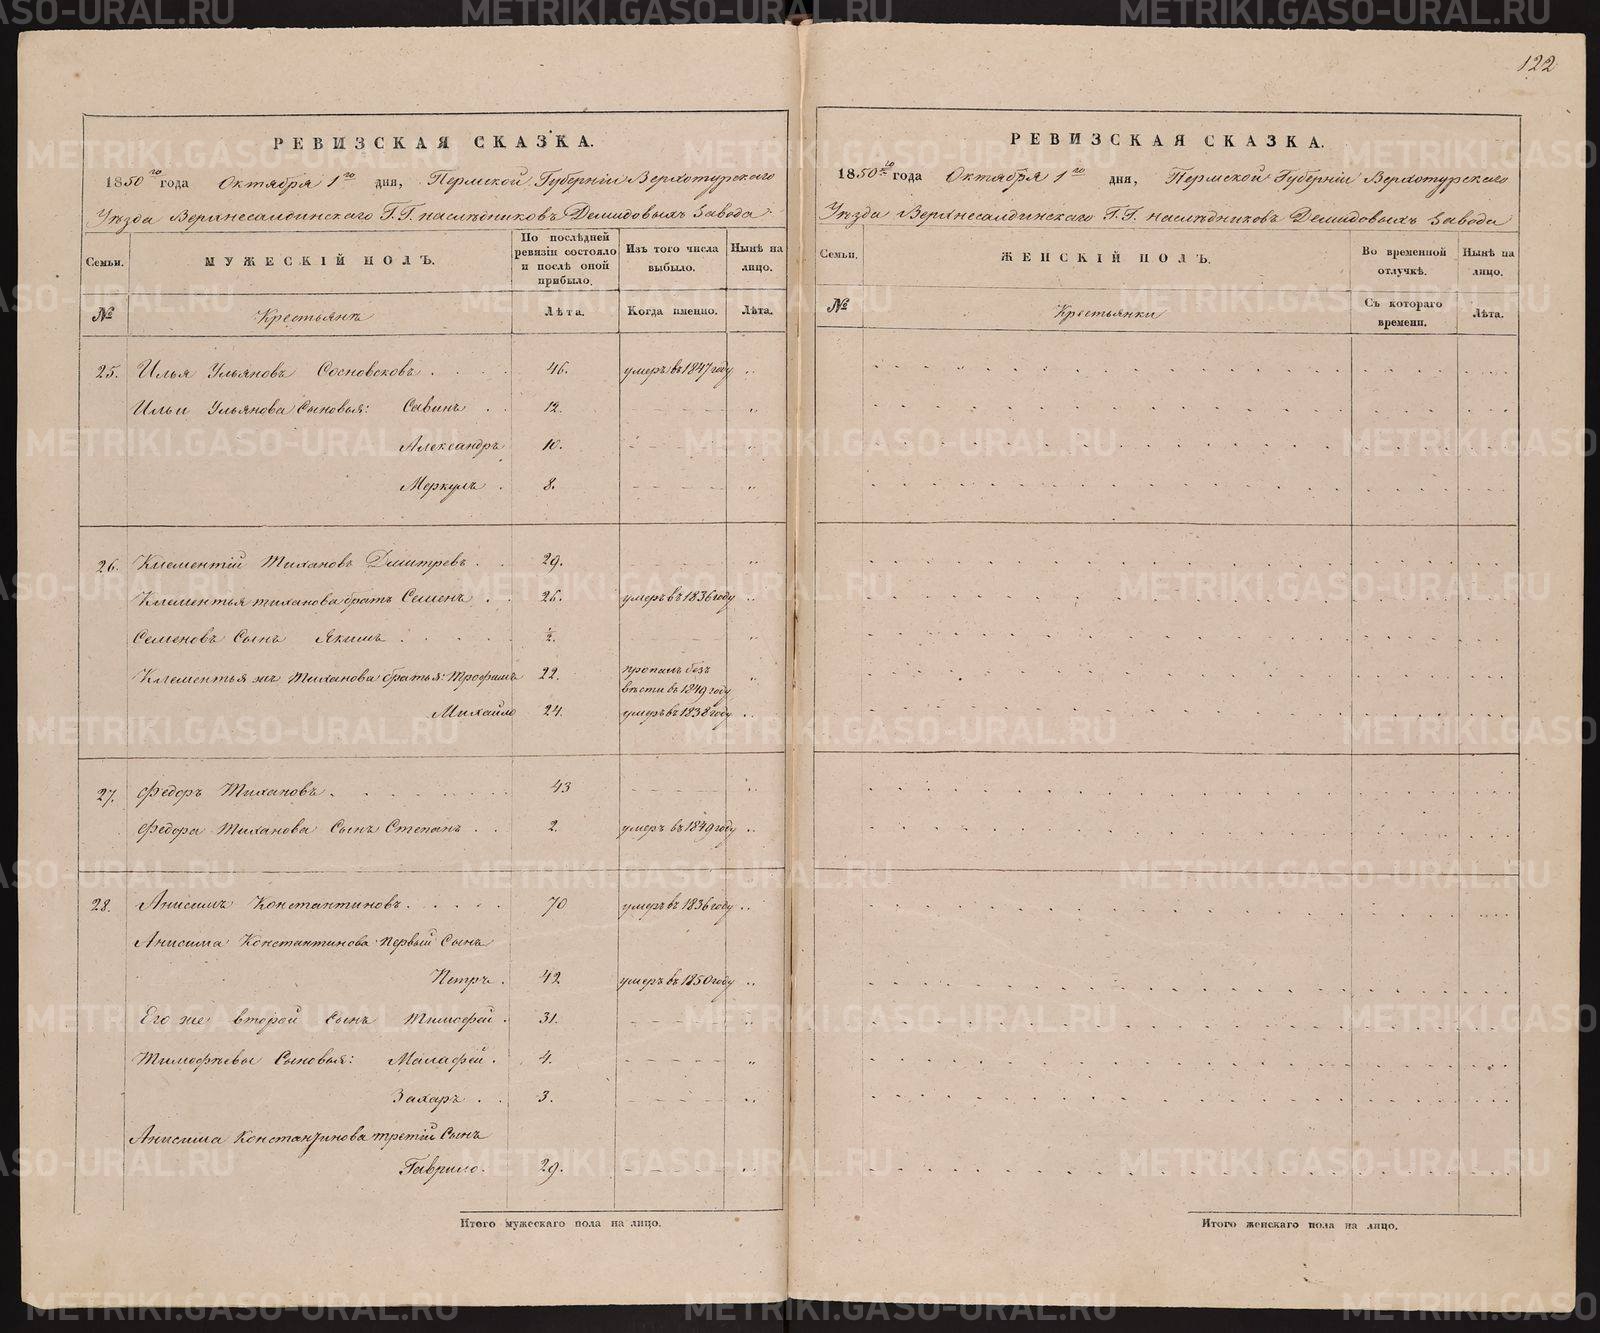 122
РЕВИЗСКАЯ СКАЗКА.
1850го года Октября 1го дня, Пермской Губерніи Верхотурского
Уѣзда Верхнесалдинского Г.Г. наслѣдниковъ Демидовыхъ Завода
Семьи.
МУЖЕСКІЙ ПОЛЪ.
По послѣдней ревизіи состояло и послѣ оной прибыло.
Изъ того числа выбыло.
Нынѣ на лицо.
№
Крестьянъ
Лѣта.
Когда именно.
Лѣта.
25. Илья Ульяновъ Сосновсковъ 46. умеръ въ 1847 году
Ильи Ульянова Сыновья: Савинъ 12.
Александръ 10.
Меркулъ 8.
26. Клементій Тихановъ Дмитревъ 29.
Клементья тиханова братъ Семенъ 26. умеръ въ 1836 году
Семеновъ Сынъ Якимъ ½.
Клементья жъ Тиханова братья: Трофимъ 22. пропалъ безъ
вѣсти въ 1849 году
Михайло 24. умеръ въ 1838 году
27. Федоръ Тихановъ 43
Федора Тиханова Сынъ Степанъ 2. умеръ въ 1849 году
28. Анисимъ Константиновъ 70 умеръ въ 1836 году
Анисима Константинова первый Сынъ
Петръ 42 умеръ въ 1850 году
Его же второй Сынъ Тимофей 31.
Тимофѣевы Сыновья: Малафей 4.
Захаръ 3.
Анисима Константинова третій Сынъ
Гаврило 29.
Итого мужескаго пола на лицо.
РЕВИЗСКАЯ СКАЗКА.
1850го года Октября 1го дня, Пермской Губерніи Верхотурского
Уѣзда Верхнесалдинского Г.Г. наслѣдниковъ Демидовыхъ Завода
Семьи.
ЖЕНСКІЙ ПОЛЪ.
Во временной отлучкѣ.
Нынѣ на лицо.
№
Крестьянки
Съ котораго времени.
Лѣта.
Итого женскаго пола на лицо.
METRIKI.GASO-URAL.RU